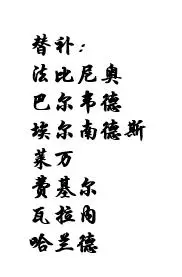 替补：
法比尼奥
巴尔韦德
埃尔南德斯
莱万
费基尔
瓦拉内
哈兰德